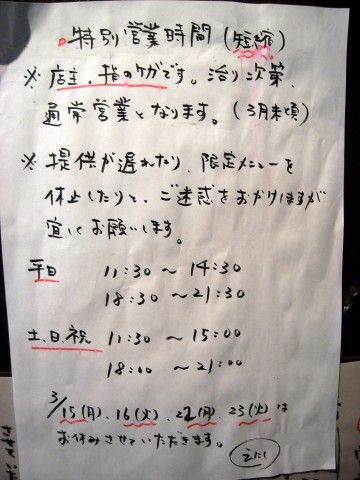 特別営業時間(短縮)
※店主、指のケガです。治り次第、
通常営業となります。(3月末頃)
※提供が遅れたり、限定メニューを
休止したりと、ご迷惑をおかけしますが
宜しくお願いします。
平日 11:30 〜 14:30
18:30 〜 21:30
土、日、祝 11:30 〜 15:00
18:00 〜 21:00
3/15(月)、16(火)、22(月)、23(火)は
お休みさせていただきます。
えにし